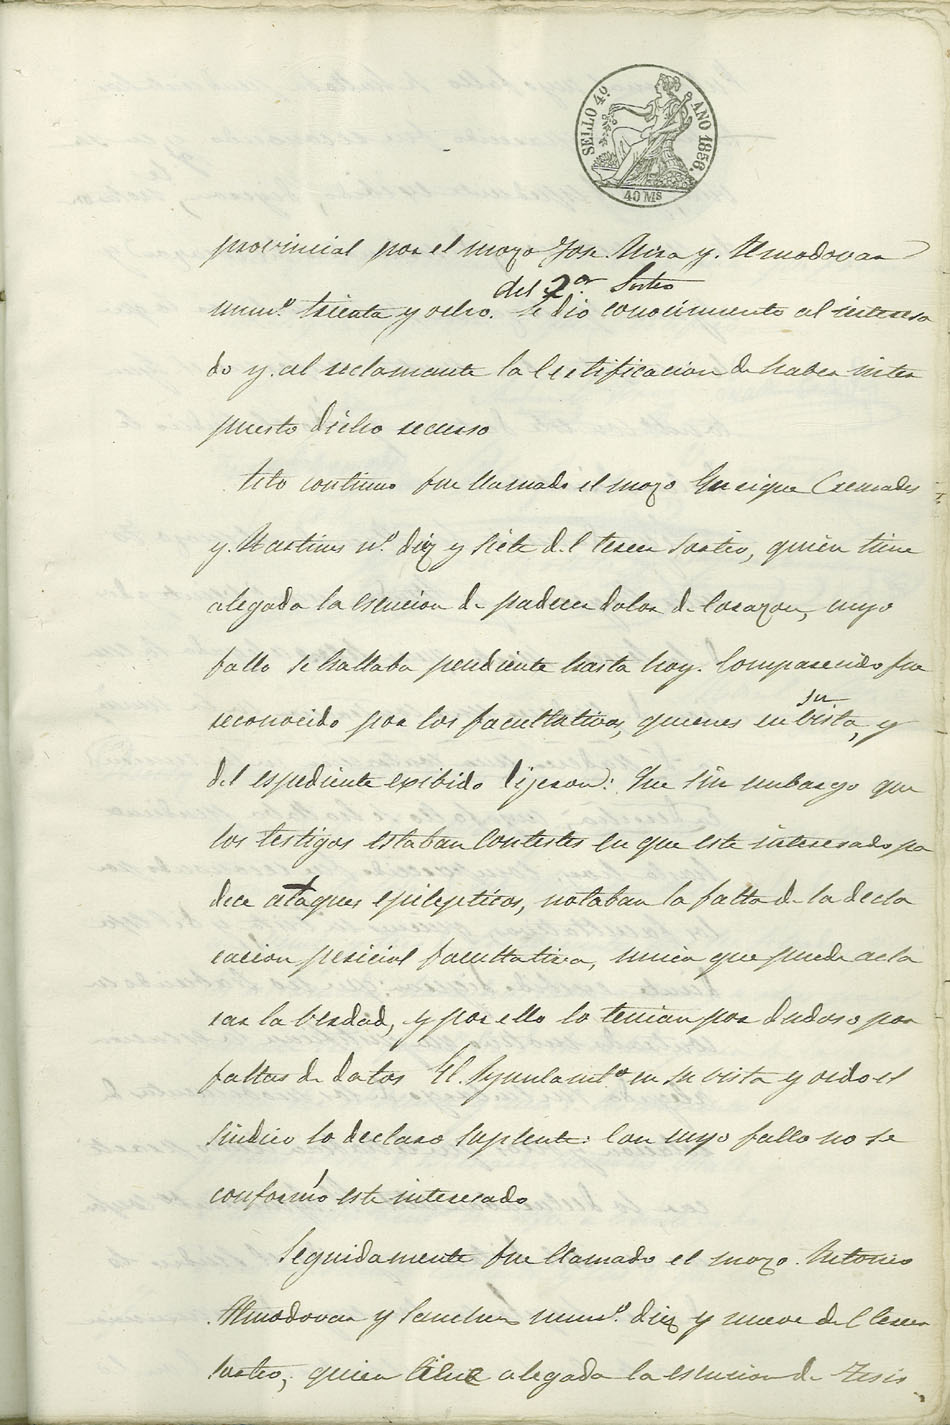 SELLO 4º AÑO 1856.
40 Ms
provincial por el mozo José Mira y Almodovar
del 2º Sorteo
num.º treinta y ocho. Se dio conocimiento al interesa
do y al reclamante la Certificacion de haber inter
puesto dicho recurso
Acto continuo fue llamado el mozo Enrique Cremades
y Martinez n.º diez y siete del tercer Sorteo, quien tiene
alegada la esencion de padecer dolor de Corazon, cuyo
fallo se hallaba pendiente hasta hoy. Comparecido fue
su
reconocido por los facultativos, quienes en vista, y
del espediente exibido digeron: Que sin embargo que
los testigos estaban contestes en que este interesado pa
dece ataques epilepticos, notaban la falta de la decla
racion pericial facultativa, unica que puede acla
rar la berdad, y por ello lo tenian por dudoso por
faltas de datos El Ayuntamt.º en su vista y oido el
Sindico lo declaro Suplente: Con cuyo fallo no se
conformó este interesado
Seguidamente fue llamado el mozo Antonio
Almodovar y Sanchez num.º diez y nueve del tercer
sorteo, quien tiene alegada la esencion de Tisis